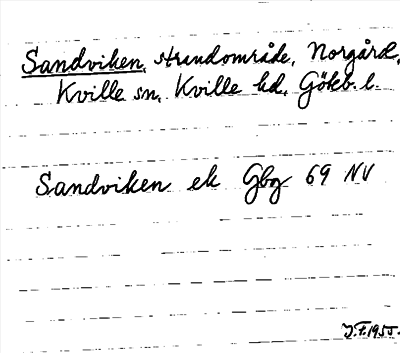 Sandviken, strandområde, Norgård,
Kville sn, Kville hd, Gökb. l.
Sandviken ek Gbg 69 NV
J.F. 1955.